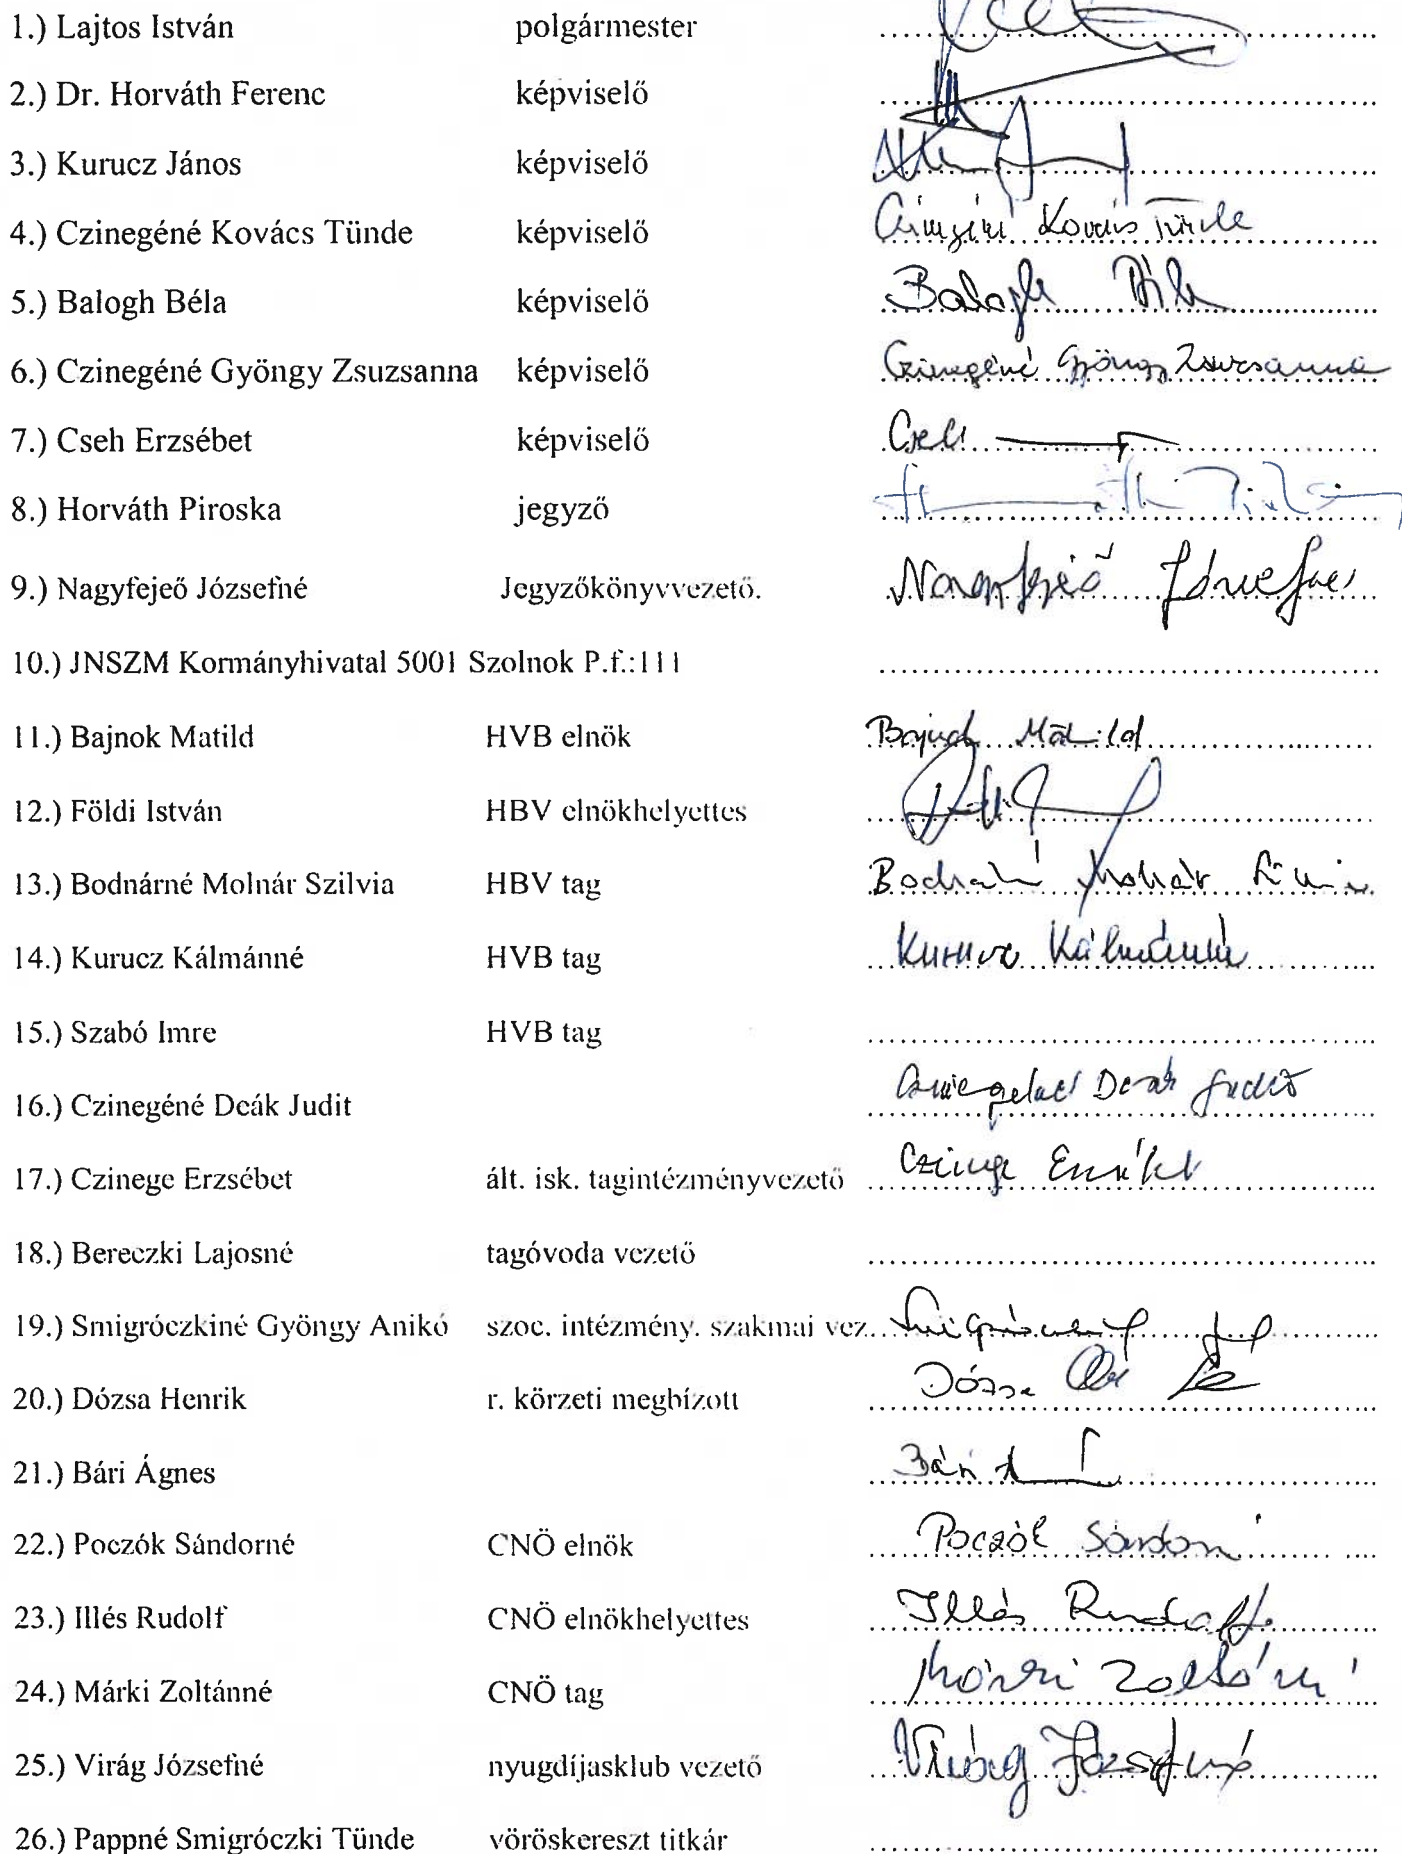 1.) Lajtos István polgármester
2.) Dr. Horváth Ferenc képviselő
3.) Kurucz János képviselő
4.) Czinegéné Kovács Tünde képviselő Kovács Tünde
5.) Balogh Béla képviselő Balogh Béla
6.) Czinegéné Gyöngy Zsuzsanna képviselő Czinegéné Gyöngy Zsuzsanna
7.) Cseh Erzsébet képviselő Cseh
8.) Horváth Piroska jegyző
9.) Nagyfejeő Józsefné Jegyzőkönyvvezető. Nagyfejeő Józsefné
10.) JNSZM Kormányhivatal 5001 Szolnok P.f.:111
11.) Bajnok Matild HVB elnök Bajnok Matild
12.) Földi István HBV elnökhelyettes
13.) Bodnárné Molnár Szilvia HBV tag Bodnárné Molnár
14.) Kurucz Kálmánné HVB tag Kurucz Kálmánné
15.) Szabó Imre HVB tag
16.) Czinegéné Deák Judit Czinegéné Deák Judit
17.) Czinege Erzsébet ált. isk. tagintézményvezető Czinege Erzsébet
18.) Bereczki Lajosné tagóvoda vezető
19.) Smigróczkiné Gyöngy Anikó szoc. intézmény. szakmai vez.
20.) Dózsa Henrik r. körzeti megbízott Dózsa
21.) Bári Ágnes Bári
22.) Poczók Sándorné CNÖ elnök Poczók Sándorné
23.) Illés Rudolf CNÖ elnökhelyettes Illés Rudolf
24.) Márki Zoltánné CNÖ tag Márki Zoltánné
25.) Virág Józsefné nyugdíjasklub vezető Virág Józsefné
26.) Pappné Smigróczki Tünde vöröskereszt titkár